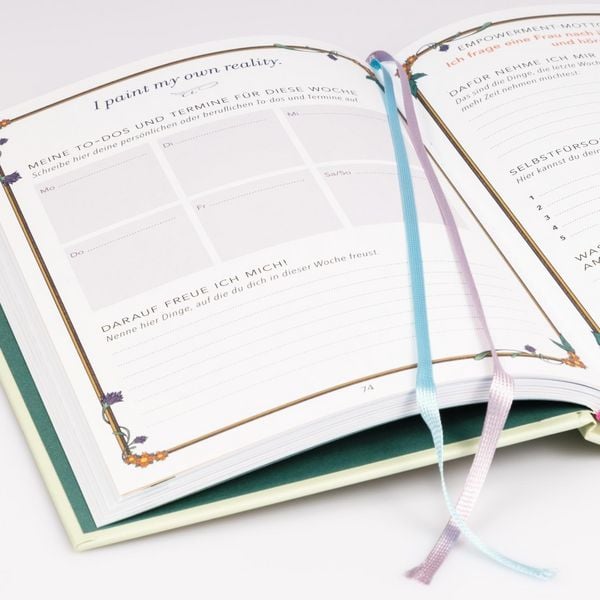 I paint my own reality.
MEINE TO-DOS UND TERMINE FÜR DIESE WOCHE
Schreibe hier deine persönlichen oder beruflichen To dos und Termine auf
Mo
Di
Mi
Do
Fr
Sa/So
DARAUF FREUE ICH MICH!
Nenne hier Dinge, auf die du dich in dieser Woche freust.
74
EMPOWERMENT-MOTTO
Ich frage eine Frau nach
und hör
DAFÜR NEHME ICH MIR
Das sind die Dinge, die letzte Woche
mehr Zeit nehmen möchtest:
SELBSTFÜRSO
Hier kannst du dein
1
2
3
4
5
WAS
AM